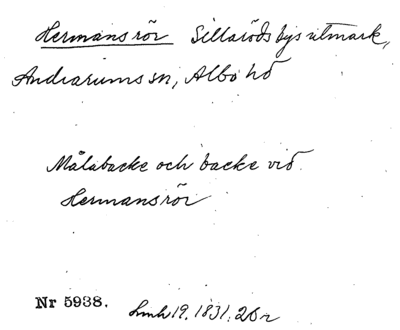 Hermansrör Sillaröds bys utmark,
Andrarums sn, Albo hd
Målabacke och backe vid
Hermansrör
Nr 5938. Lmh 19. 1831. 26